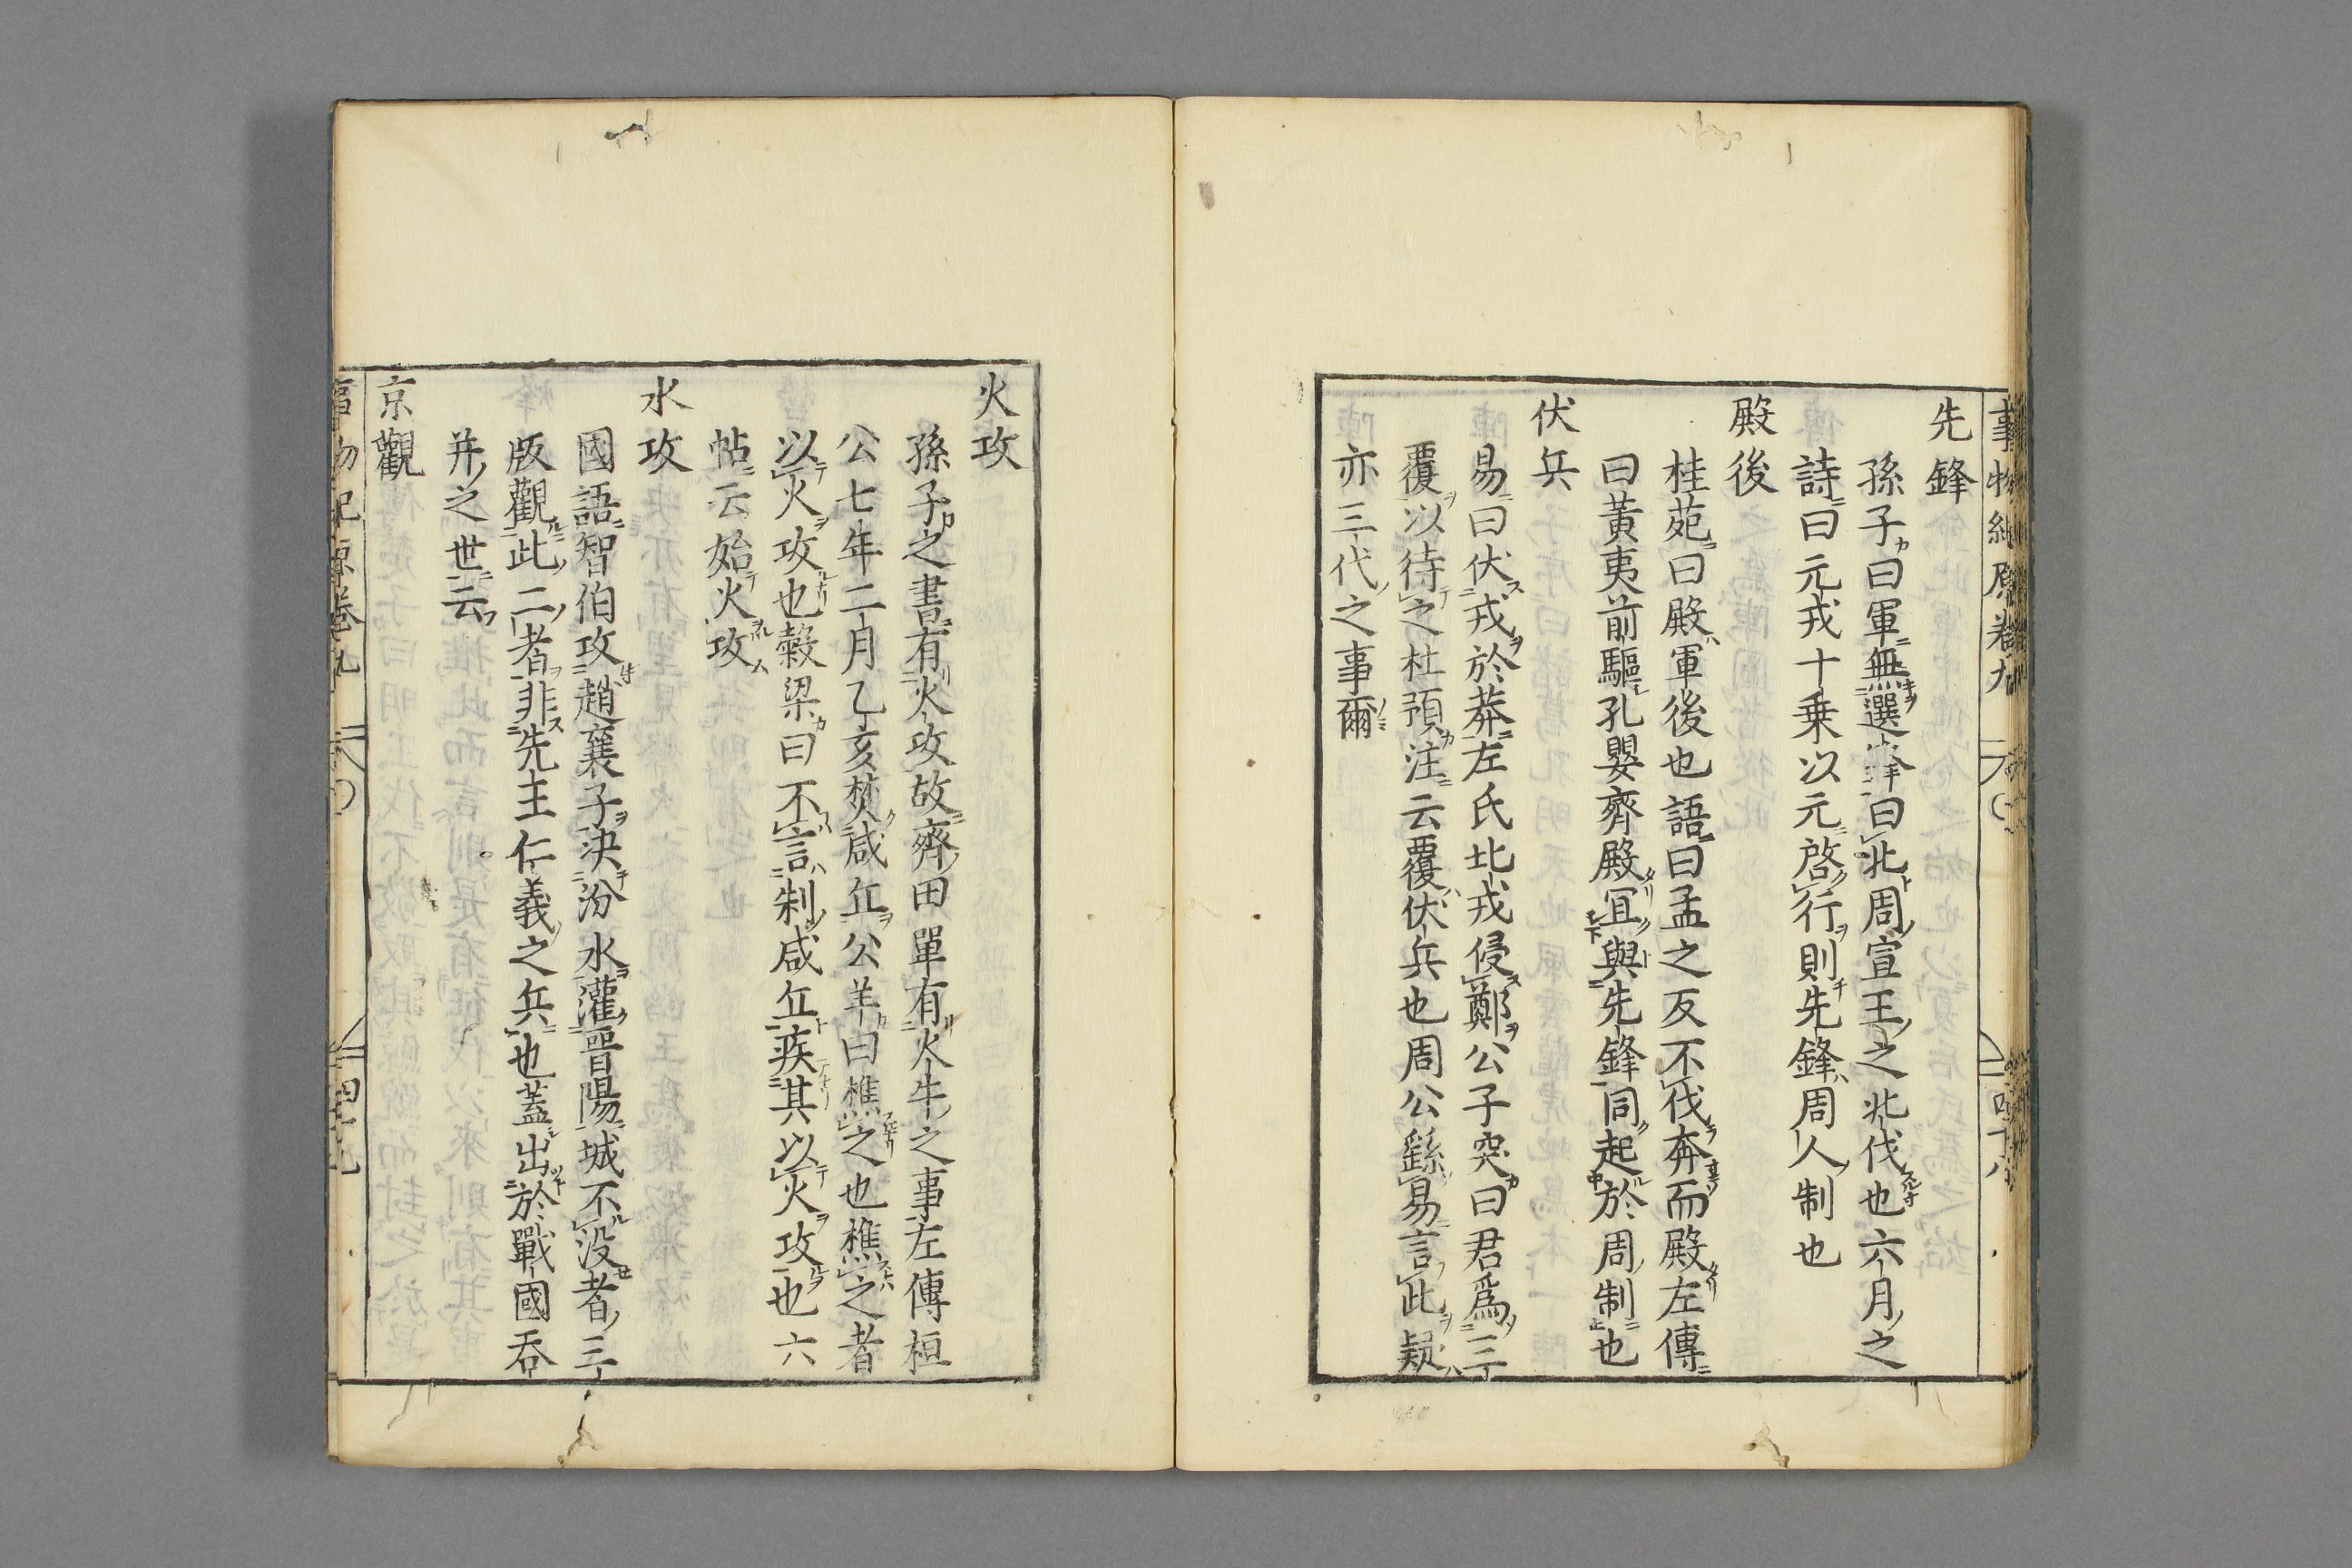 事物紀原卷九
先鋒
孫子曰軍無選鋒曰北周宣王之北伐也六月之
詩曰元戎十乗以元啓行則先鋒周人制也
殿後
桂苑曰殿軍後也語曰孟之反不伐奔而殿左傳
曰黃夷前驅孔嬰齊殿冝與先鋒同起於周制也
伏兵
易曰伏戎於莽左氏北戎侵鄭公子突曰君爲三
覆以待之杜預注云覆伏兵也周公繇易言此疑
亦三代之事爾
火攻
孫子之書有火攻故齊田單有火牛之事左傳桓
公七年二月乙亥焚咸丘公羊曰樵之也樵之者
以火攻也糓梁曰不言制咸丘疾其以火攻也六
帖云始火攻
水攻
國語智伯攻趙襄子決汾水灌晋陽城不没者三
版觀此二者非先王仁義之兵也蓋出於戰國吞
并之世云
京觀
事物紀原卷九